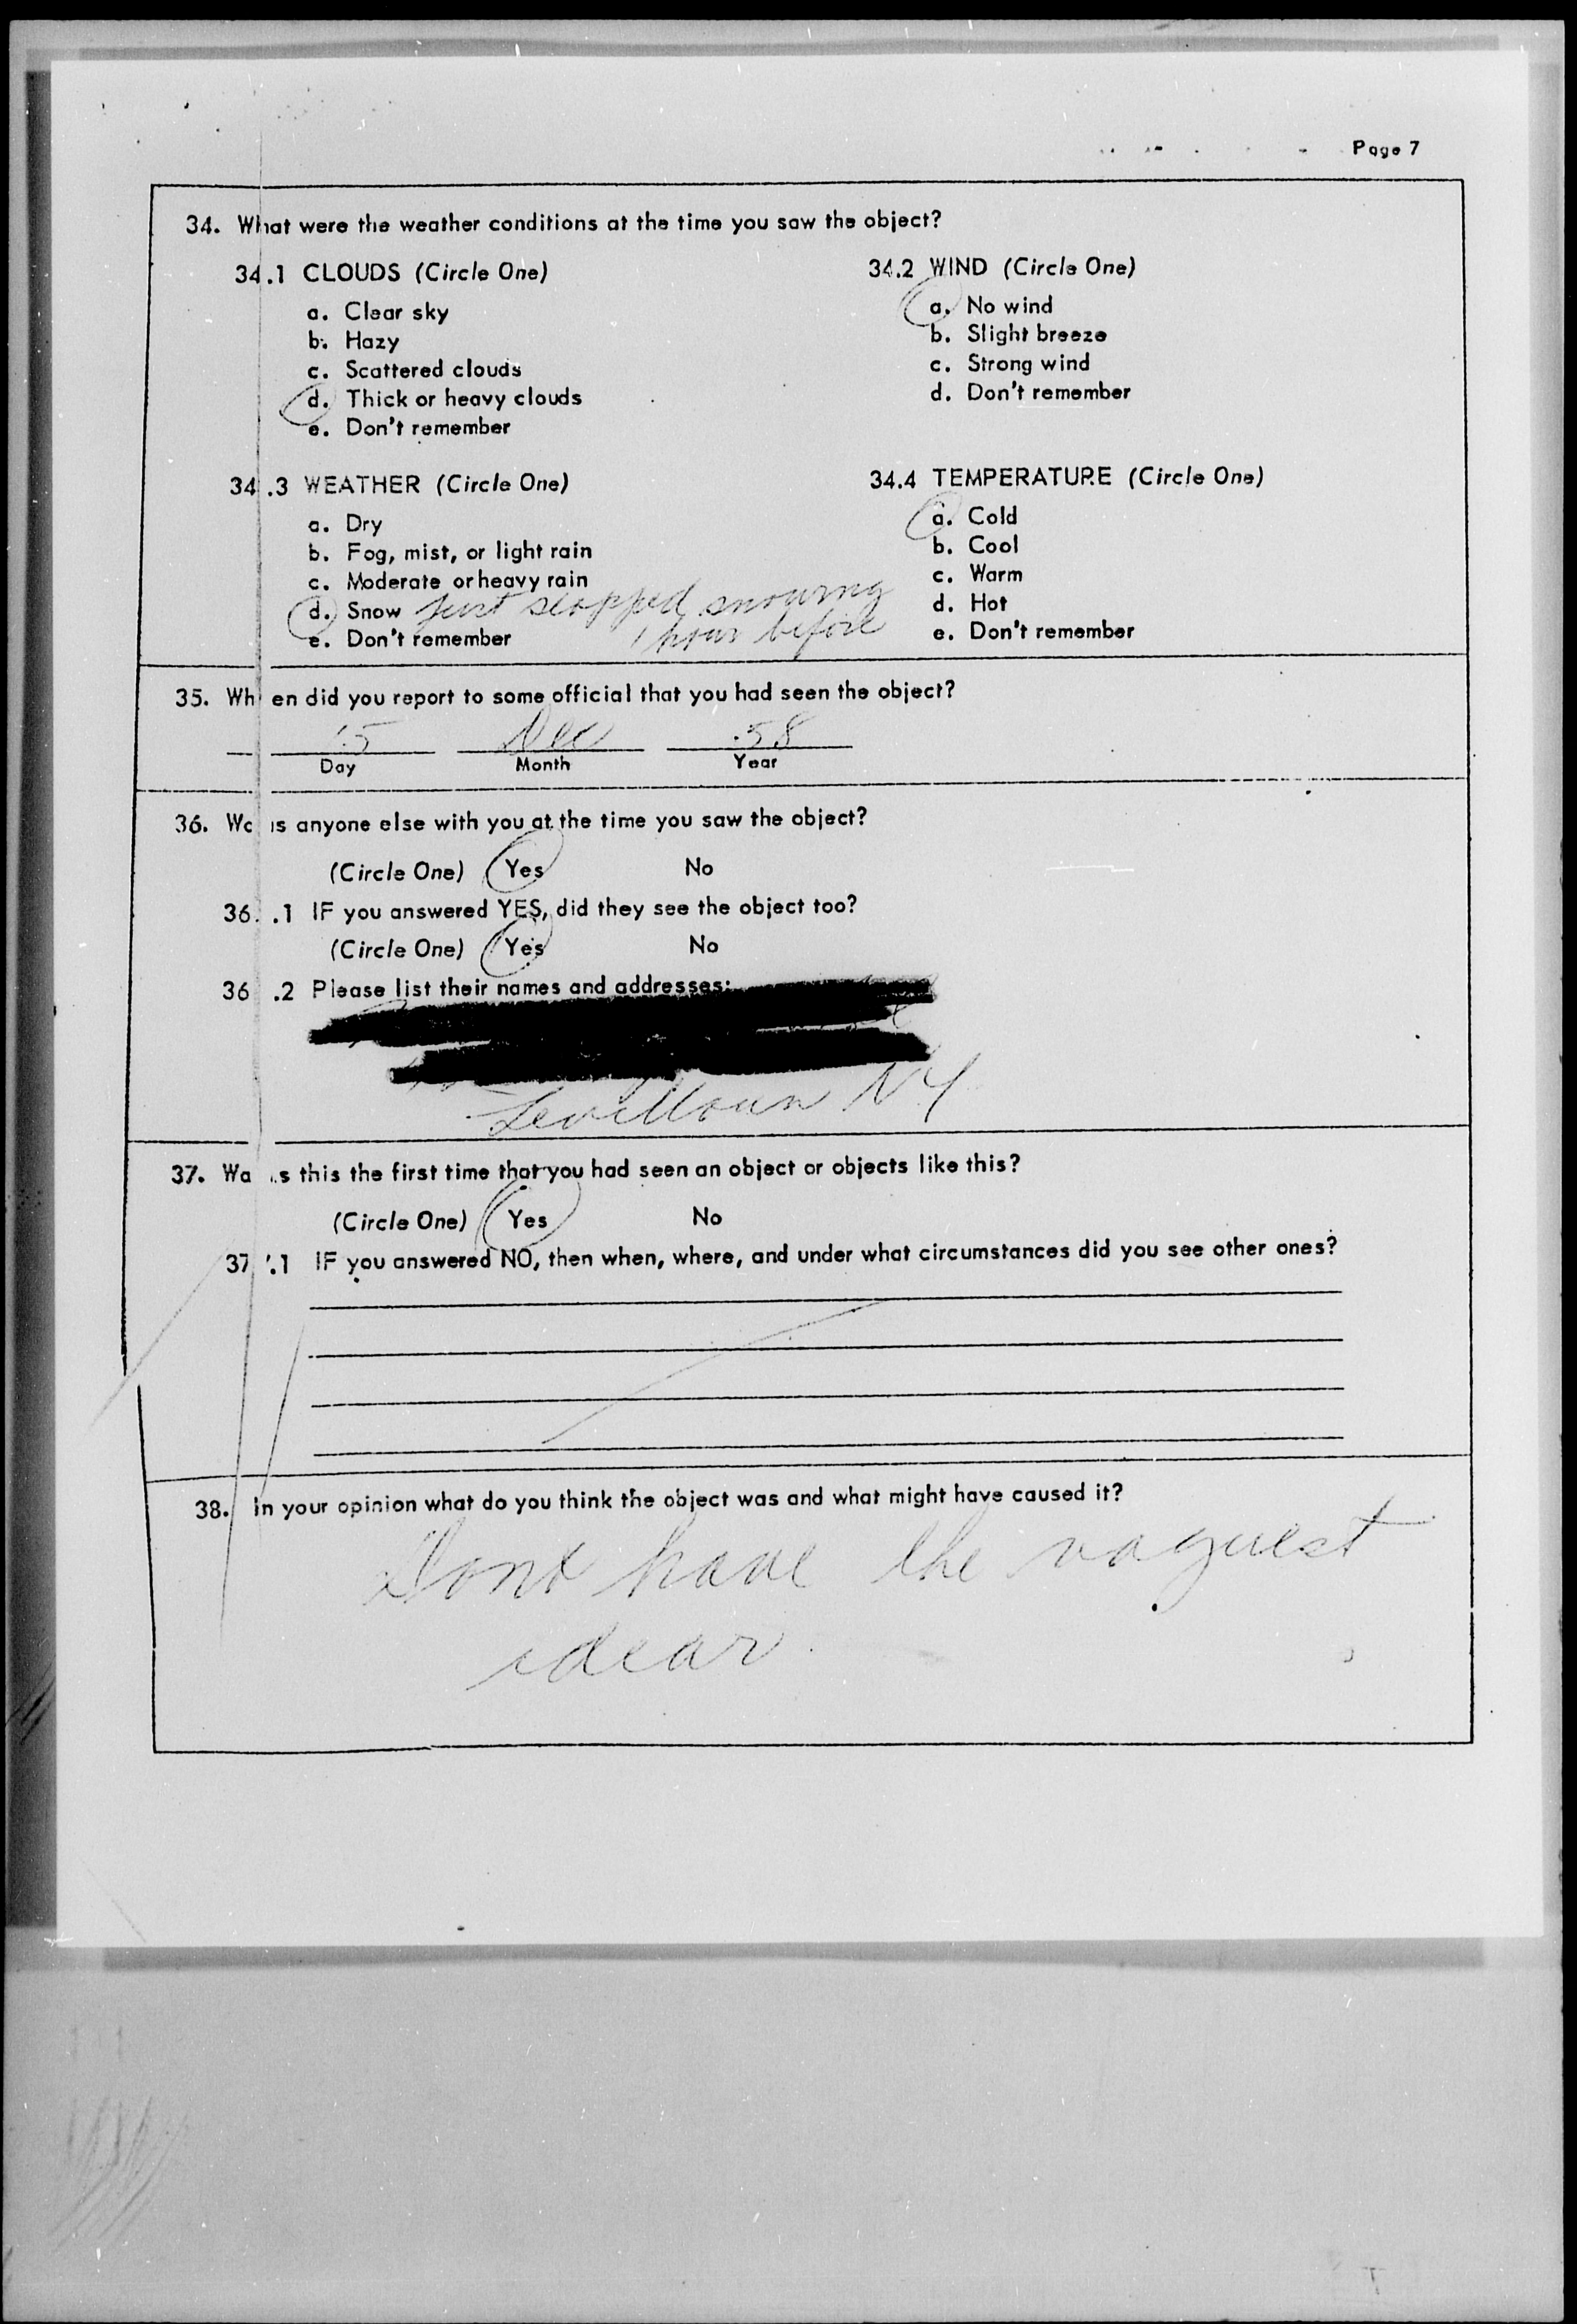 Page 7
34. What were the weather conditions at the time you saw the object?
34.1 CLOUDS (Circle One)
a. Clear sky
b. Hazy
c. Scattered clouds
d. Thick or heavy clouds
e. Don't remember
34.2 WIND (Circle One)
a. No wind
b. Slight breeze
c. Strong wind
d. Don't remember
34.3 WEATHER (Circle One)
a. Dry
b. Fog, mist, or light rain
c. Moderate or heavy rain
d. Snow just stopped snowing
1 hour before
e. Don't remember
34.4 TEMPERATURE (Circle One)
a. Cold
b. Cool
c. Warm
d. Hot
e. Don't remember
35. When did you report to some official that you had seen the object?
15 Dec 58
Day Month Year
36. Was anyone else with you at the time you saw the object?
(Circle One) Yes No
36.1 IF you answered YES, did they see the object too?
(Circle One) Yes No
36.2 Please list their names and addresses:
Levittown NY
37. Was this the first time that you had seen an object or objects like this?
(Circle One) Yes No
37.1 IF you answered NO, then when, where, and under what circumstances did you see other ones?
38. In your opinion what do you think the object was and what might have caused it?
Dont have the vaguest
idear